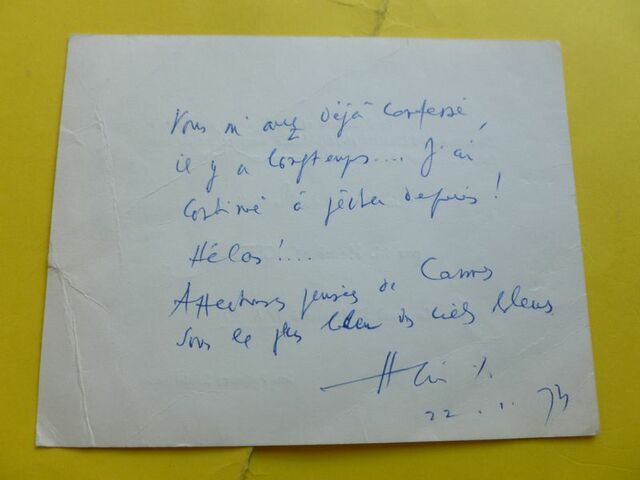 Vous m'avez déjà confessé,
il y a longtemps.... J'ai
continué à pécher depuis !
Hélas !....
Affectueuses pensées de Cannes
sous le plus bleu des ciels bleus
22 . 1. 73